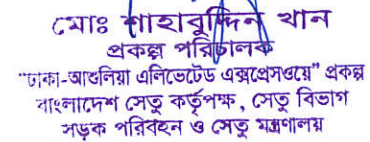 মোঃ শাহাবুদ্দিন খান
প্রকল্প পরিচালক
"ঢাকা-আশুলিয়া এলিভেটেড এক্সপ্রেসওয়ে" প্রকল্প
বাংলাদেশ সেতু কর্তৃপক্ষ, সেতু বিভাগ
সড়ক পরিবহন ও সেতু মন্ত্রণালয়